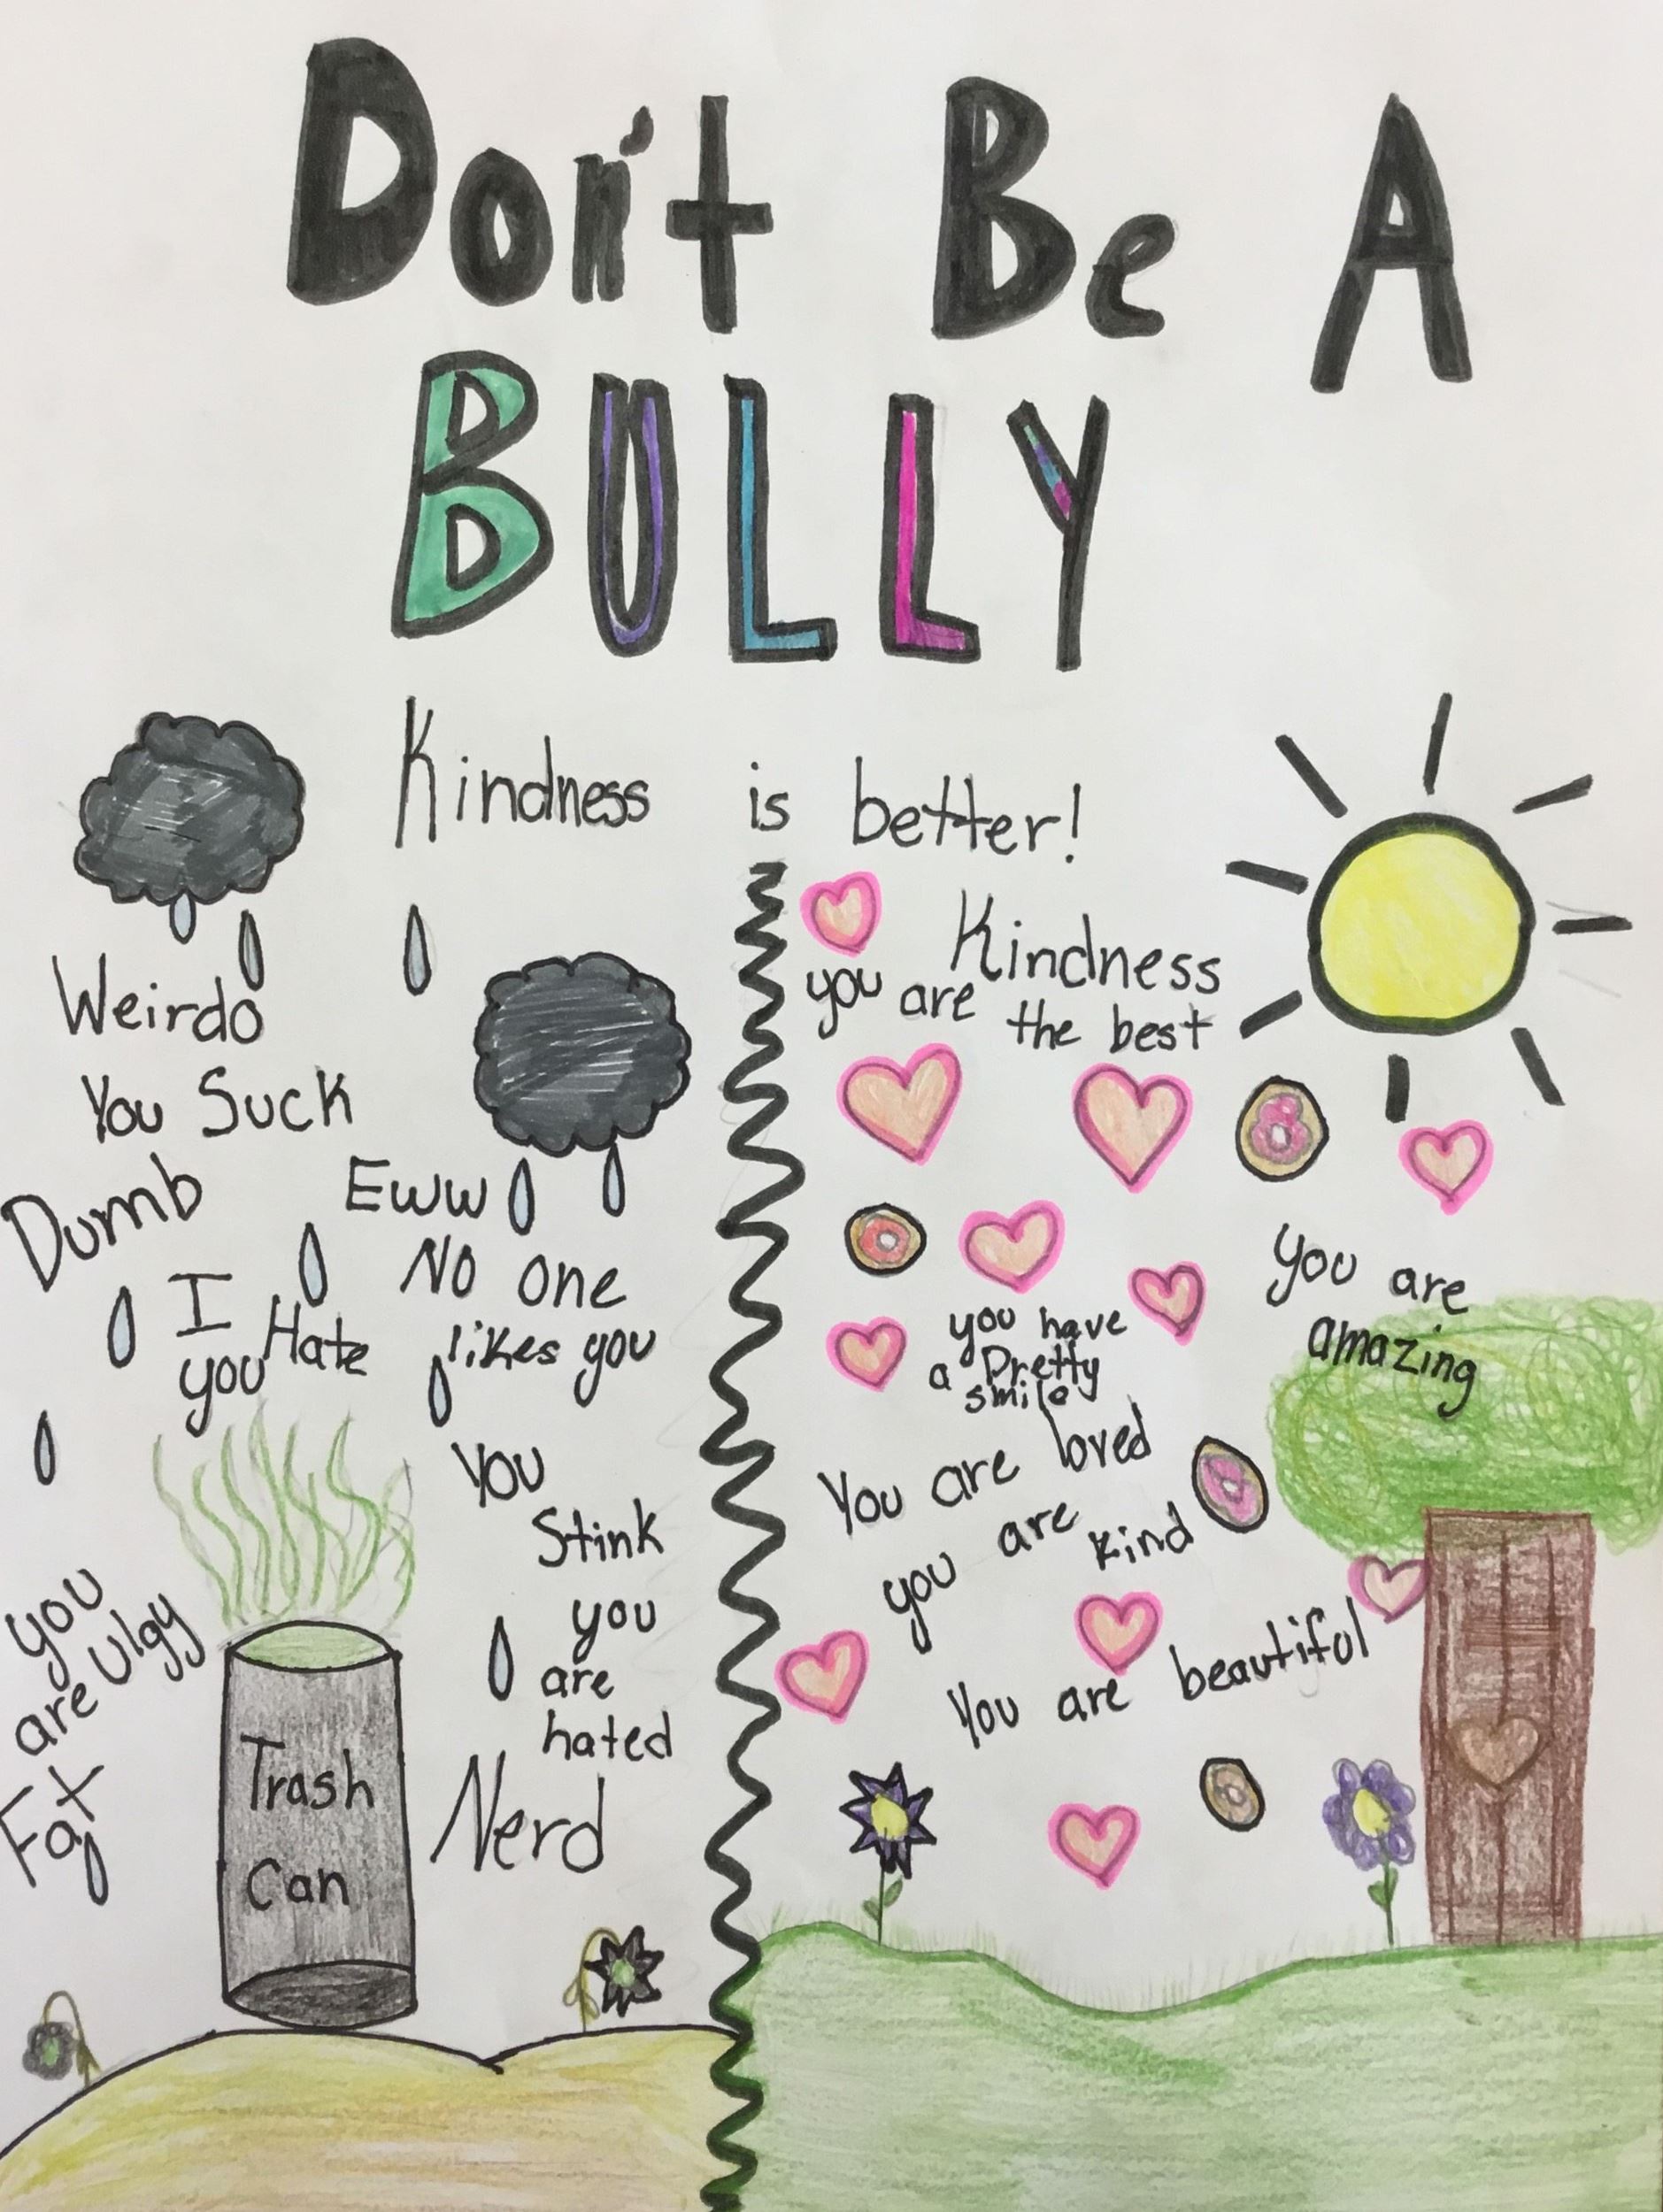 Don't Be A
BULLY
Kindness is better!
Weirdo
You Suck
Dumb
Eww
I
Hate
you
No one
likes you
You
Stink
you
are Ulgy
you
are
hated
Fat
Trash
Can
Nerd
Kindness
you are
the best
you are
amazing
you have
a Pretty
smile
You are loved
you are kind
You are beautiful